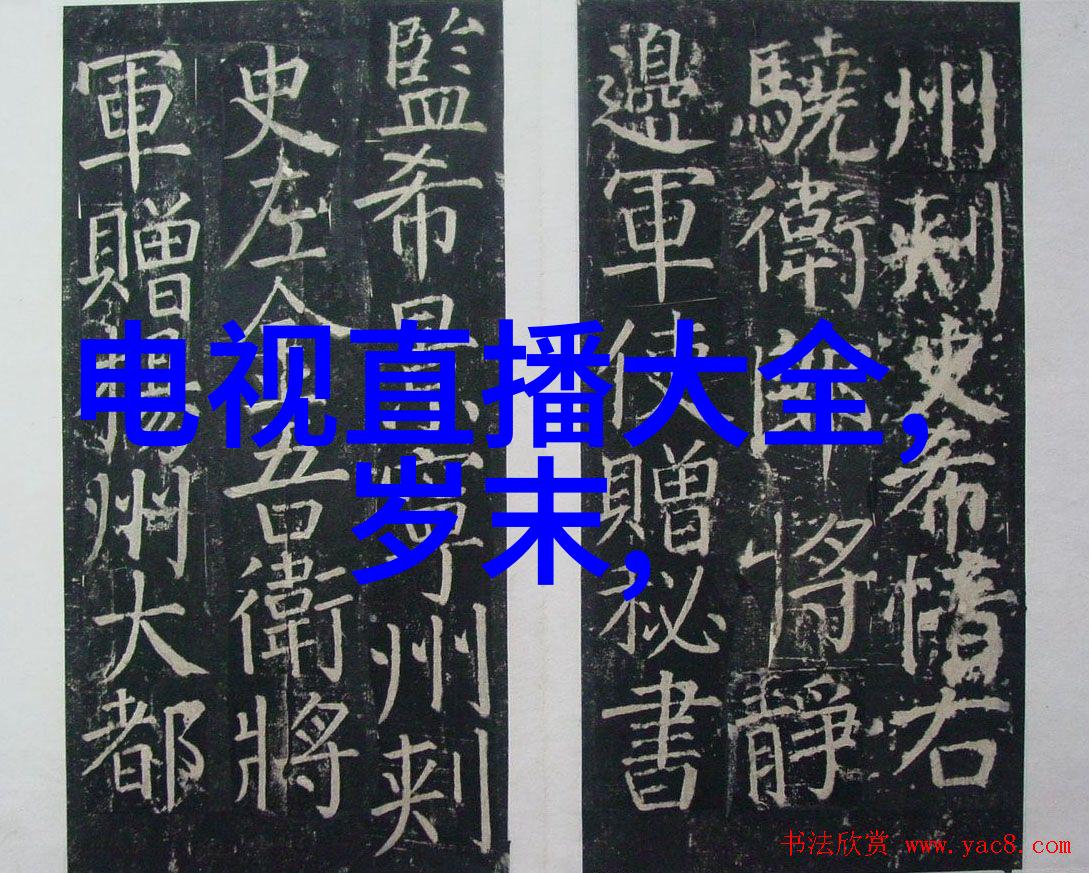 州刺史希右
驍衛郎將靜
邊軍使贈秘書
監希景寧州刺
史左金吾衛將
軍贈揚州大都
电视直播大全,
岁末,
书法欣赏 www.yac8.com